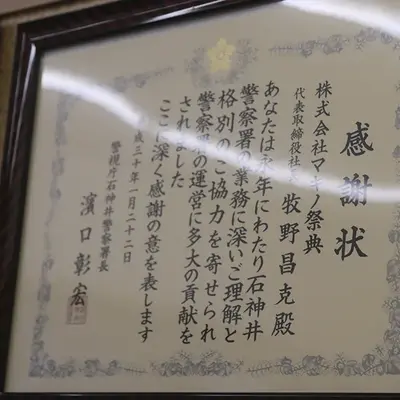 感謝状
株式会社マキノ祭典
代表取締役社長 牧野昌克殿
あなたは永年にわたり石神井
警察署の業務に深いご理解と
格別のご協力を寄せられ
警察署の運営に多大の貢献を
されました
ここに深く感謝の意を表します
平成三十年一月二十二日
警視庁石神井警察署長
濱口彰宏